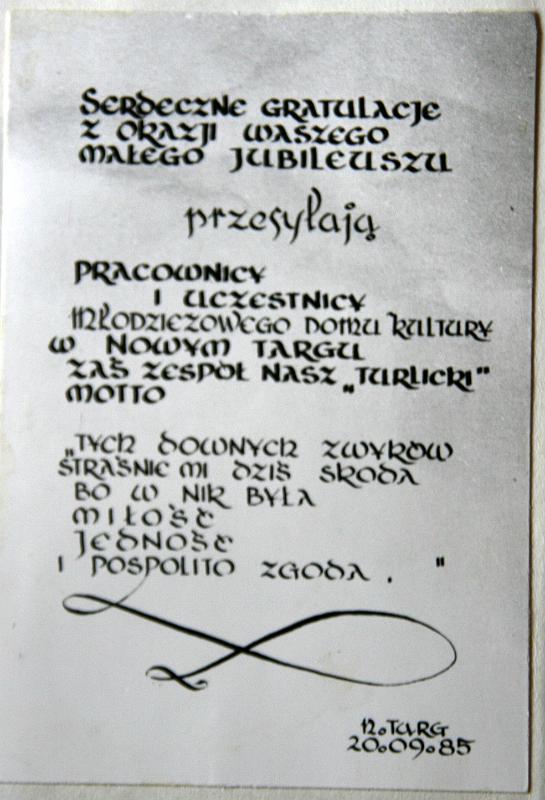 Serdeczne gratulacje
z okazji waszego
małego jubileuszu
przesyłają
pracownicy
i uczestnicy
Młodzieżowego Domu Kultury
w Nowym Targu
zaś zespół nasz „Turlicki"
motto
„Tych downych zwykow
straśnie mi dziś skoda
bo w nik była
miłość
jedność
i pospolito zgoda . "
N.Targ
20.09.85